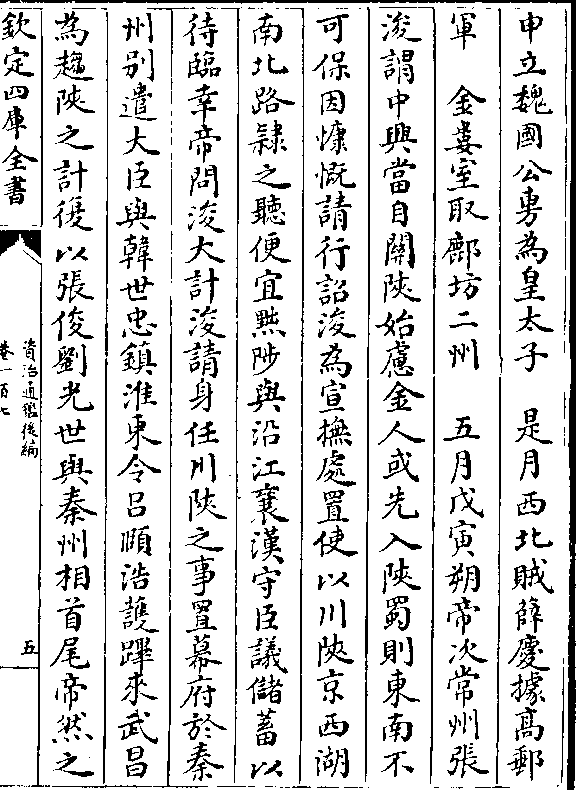 申立魏國公旉為皇太子　是月西北賊薛慶據髙郵
軍　金婁室取鄜坊二州　五月戊寅朔帝次常州張
浚謂中興當自關陜始慮金人或先入陜蜀則東南不
可保因慷慨請行詔浚為宣撫處置使以川陜京西湖
南北路隷之聽便宜黜陟與沿江襄漢守臣議儲蓄以
待臨幸帝問浚大計浚請身任川陜之事置幕府於秦
州别遣大臣與韓世忠鎮淮東令吕頤浩䕶蹕來武昌
為趨陜之計復以張俊劉光世與秦州相首尾帝然之
欽定四庫全書
資治通鑑後編
卷一百七
五